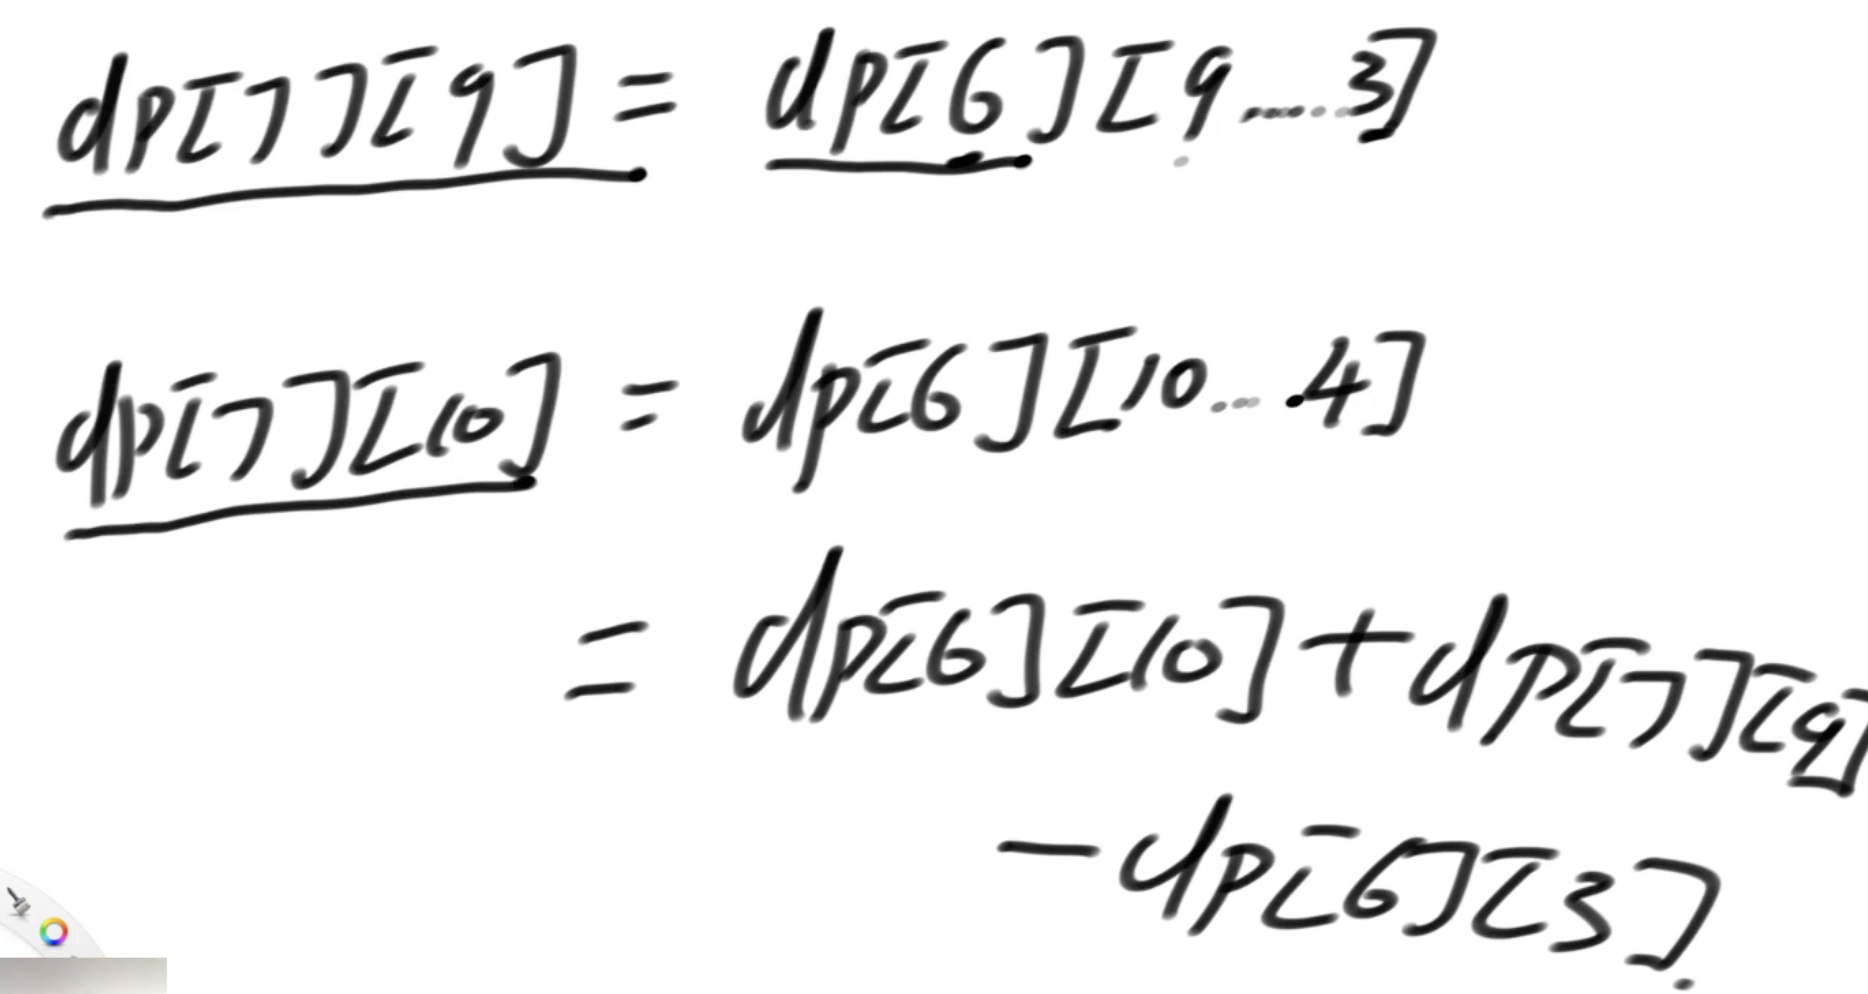 dp[7][9] = dp[6][9.....3]
dp[7][10] = dp[6][10....4]
= dp[6][10] + dp[7][9]
- dp[6][3]